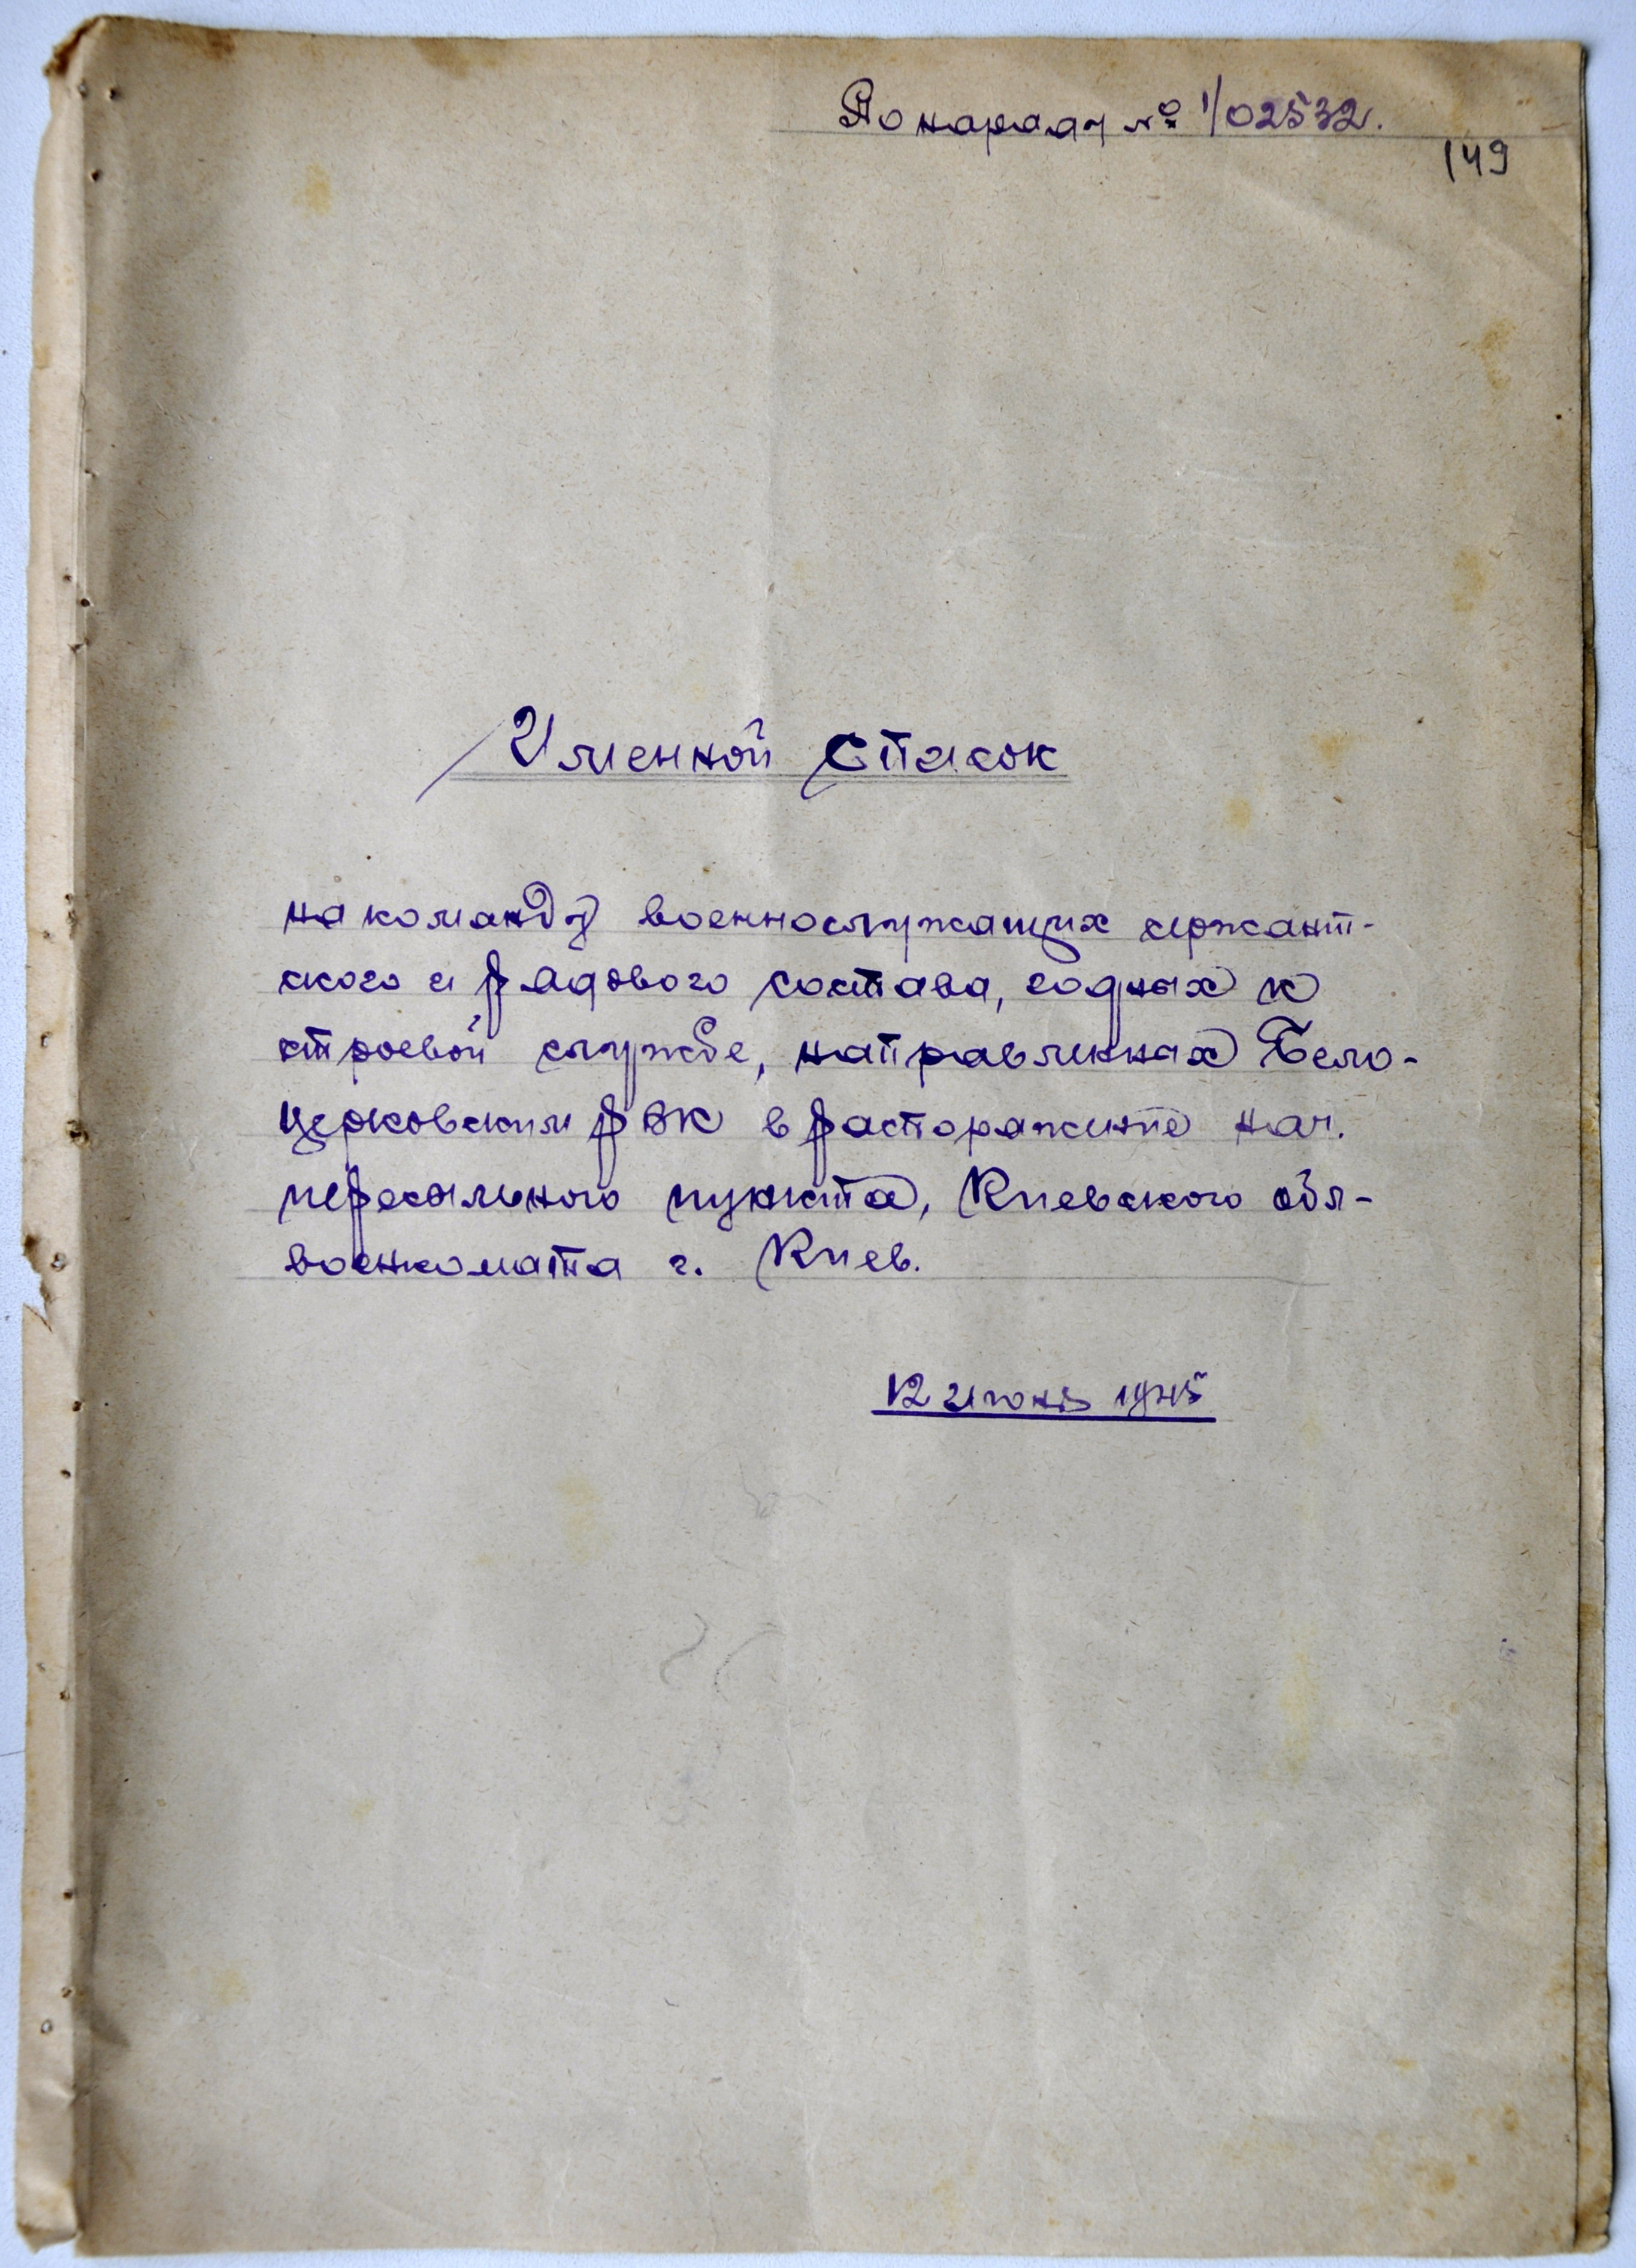 По наряду № 1/02532.
149
Именной список
на команду военнослужащих сержант-
ского и рядового состава, годных к
строевой службе, направленных Бело-
церковским РВК в распоряжение нач.
пересыльного пункта, Киевского обл-
военкомата г. Киев.
12 июня 1945